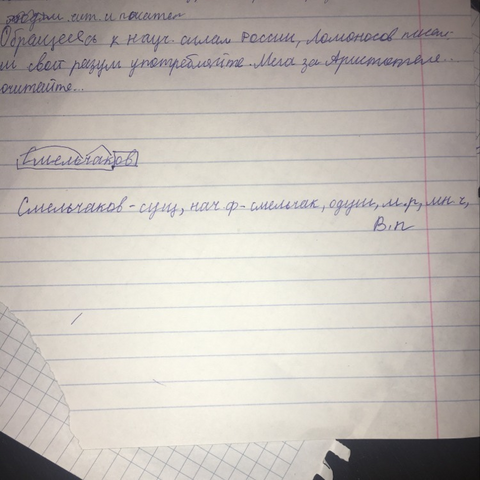 сит. и писател
Обращаясь к науч. силам России, Ломоносов писал
свой разум употребляйте. Меня за Аристотеля..
почитайте...
Смельчаков
Смельчаков - сущ, нач ф - смельчак, одуш, м.р, мн.ч,
В.п